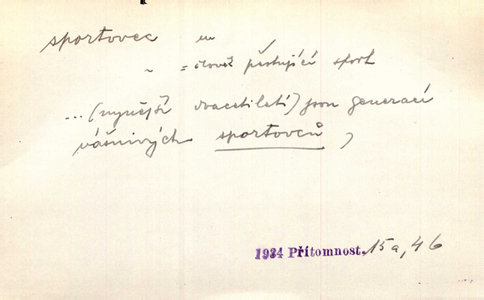 sportovec m
~ = člověk pěstující sport
... (nynější dvacetiletí) jsou generací
vášnivých sportovců,
1934 Přítomnost. 15a, 46